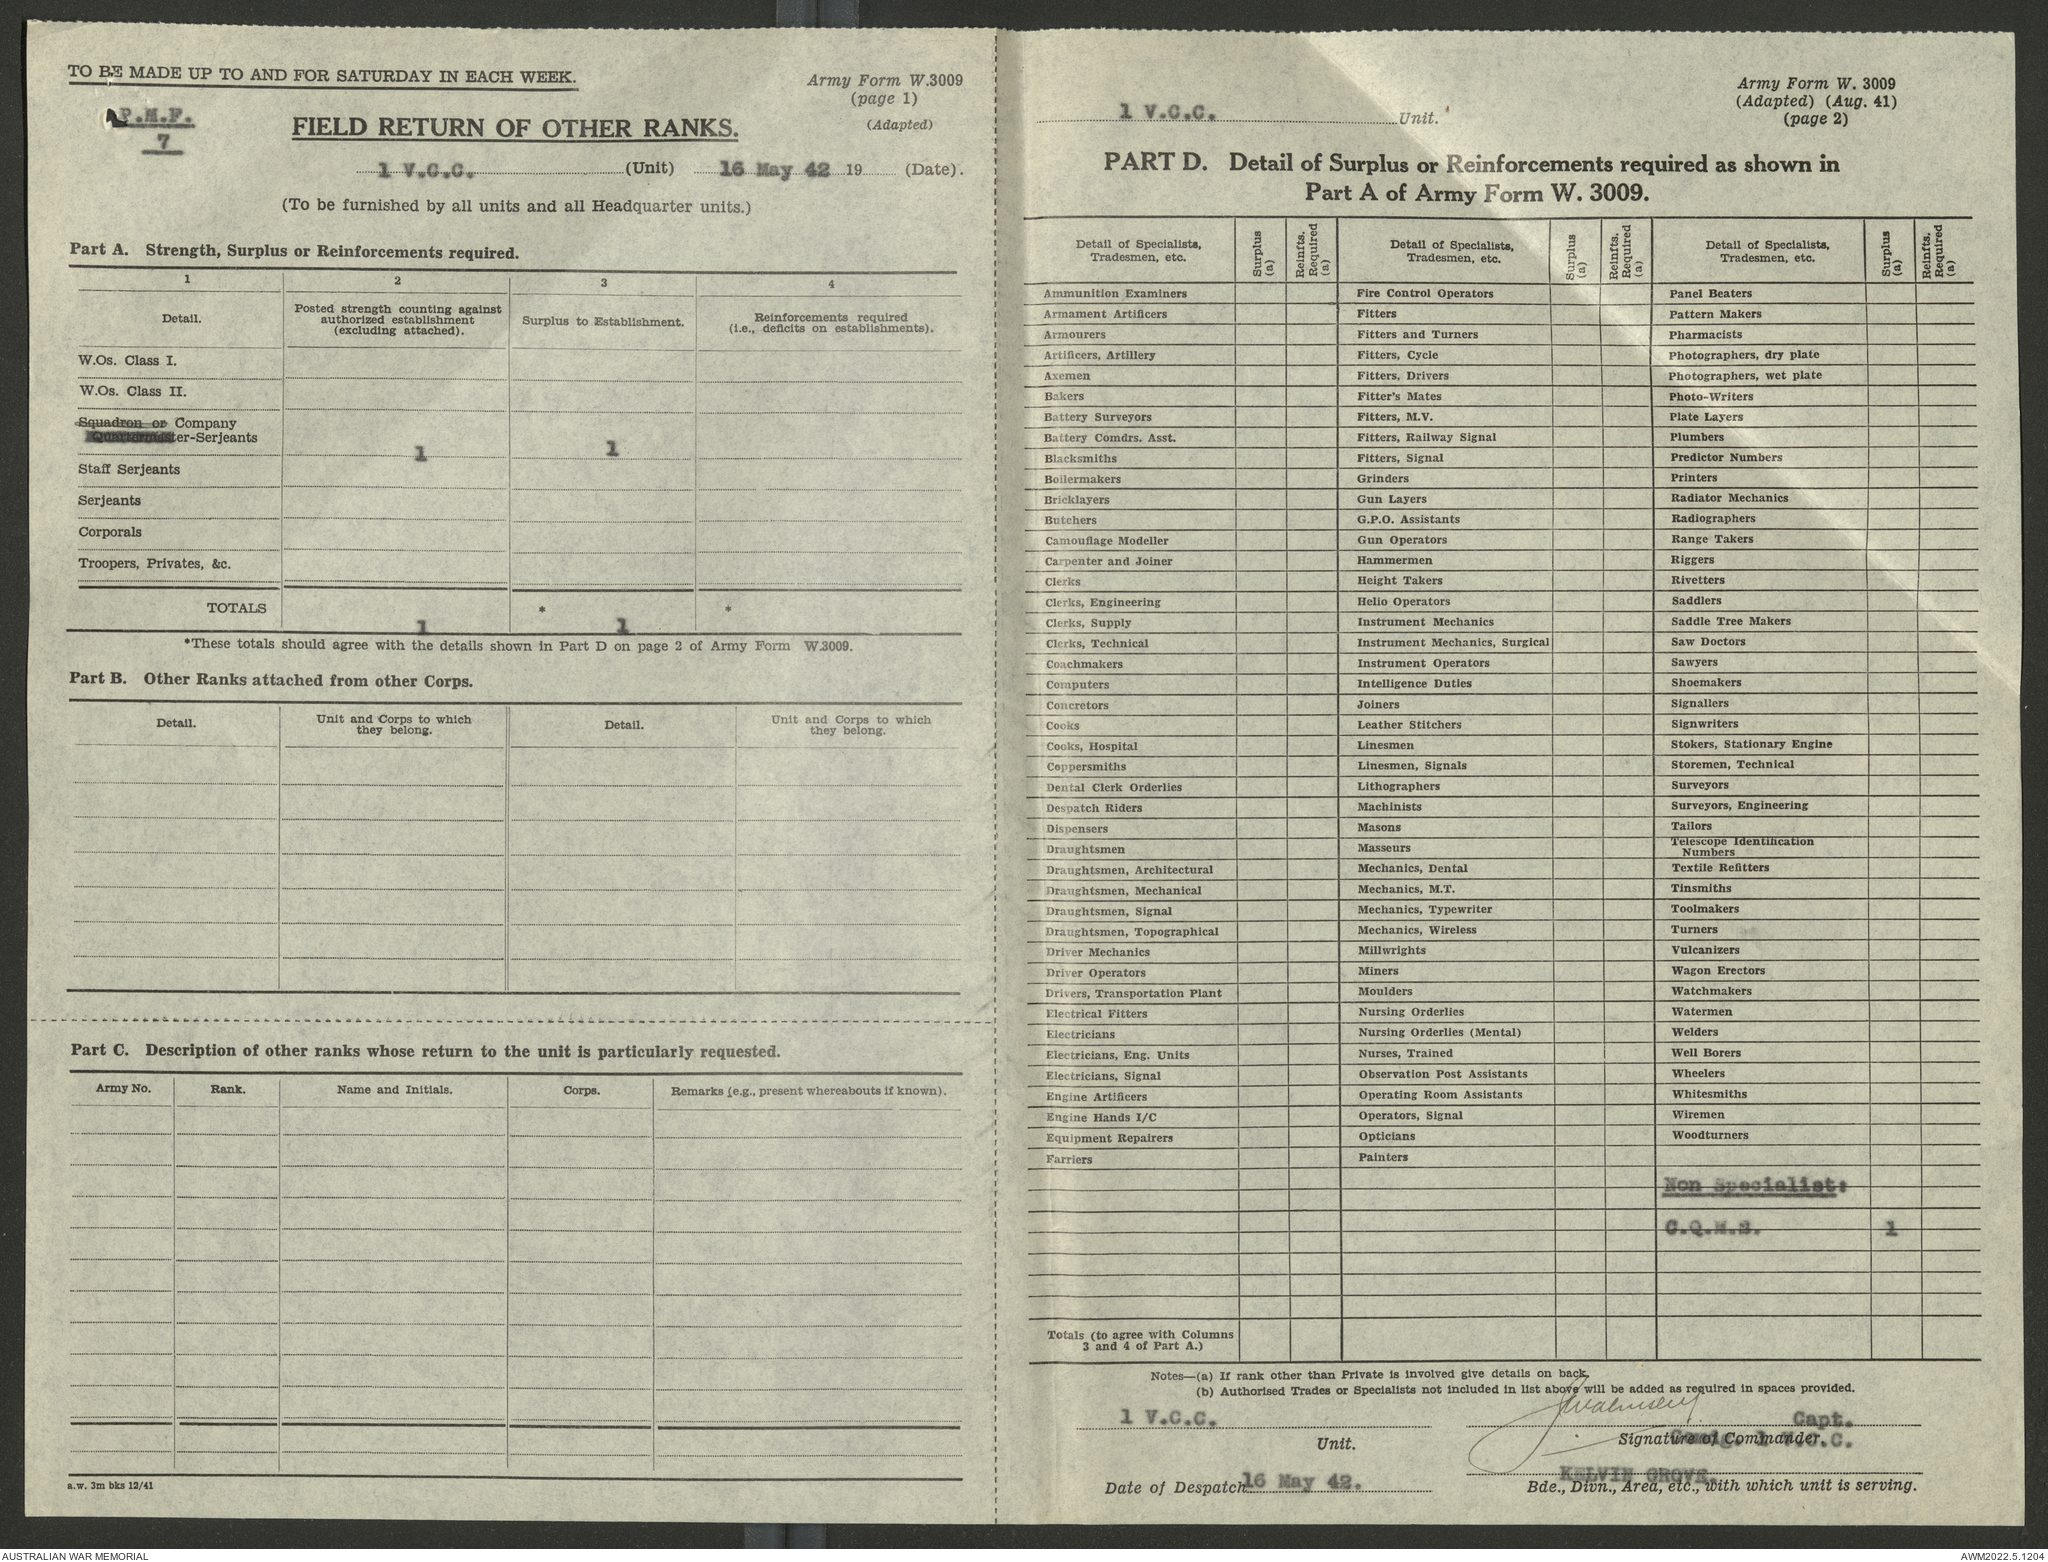 TO BE MADE UP TO AND FOR SATURDAY IN EACH WEEK.
Army Form W.3009
(page 1)
(Adapted)
P.M.F.
7
FIELD RETURN OF OTHER RANKS.
1 V.C.C. (Unit) 16 May 42 19 (Date).
(To be furnished by all units and all Headquarter units.)
Part A. Strength, Surplus or Reinforcements required.
1 2 3 4
Detail.
Posted strength counting against
authorized establishment
(excluding attached).
Surplus to Establishment.
Reinforcements required
(i.e., deficits on establishments).
W.Os. Class I.
W.Os. Class II.
Squadron or Company
Quartermaster-Serjeants 1 1
Staff Serjeants
Serjeants
Corporals
Troopers, Privates, &c.
TOTALS 1 * 1 *
*These totals should agree with the details shown in Part D on page 2 of Army Form W.3009.
Part B. Other Ranks attached from other Corps.
Detail.
Unit and Corps to which
they belong.
Detail.
Unit and Corps to which
they belong.
Part C. Description of other ranks whose return to the unit is particularly requested.
Army No. Rank. Name and Initials. Corps. Remarks (e.g., present whereabouts if known).
a.w. 3m bks 12/41
1 V.C.C. Unit.
Army Form W. 3009
(Adapted) (Aug. 41)
(page 2)
PART D. Detail of Surplus or Reinforcements required as shown in
Part A of Army Form W. 3009.
Detail of Specialists,
Tradesmen, etc.
Surplus
(a)
Reinfts.
Required
(a)
Detail of Specialists,
Tradesmen, etc.
Surplus
(a)
Reinfts.
Required
(a)
Detail of Specialists,
Tradesmen, etc.
Surplus
(a)
Reinfts.
Required
(a)
Ammunition Examiners Fire Control Operators Panel Beaters
Armament Artificers Fitters Pattern Makers
Armourers Fitters and Turners Pharmacists
Artificers, Artillery Fitters, Cycle Photographers, dry plate
Axemen Fitters, Drivers Photographers, wet plate
Bakers Fitter's Mates Photo-Writers
Battery Surveyors Fitters, M.V. Plate Layers
Battery Comdrs. Asst. Fitters, Railway Signal Plumbers
Blacksmiths Fitters, Signal Predictor Numbers
Boilermakers Grinders Printers
Bricklayers Gun Layers Radiator Mechanics
Butchers G.P.O. Assistants Radiographers
Camouflage Modeller Gun Operators Range Takers
Carpenter and Joiner Hammermen Riggers
Clerks Height Takers Rivetters
Clerks, Engineering Helio Operators Saddlers
Clerks, Supply Instrument Mechanics Saddle Tree Makers
Clerks, Technical Instrument Mechanics, Surgical Saw Doctors
Coachmakers Instrument Operators Sawyers
Computers Intelligence Duties Shoemakers
Concretors Joiners Signallers
Cooks Leather Stitchers Signwriters
Cooks, Hospital Linesmen Stokers, Stationary Engine
Coppersmiths Linesmen, Signals Storemen, Technical
Dental Clerk Orderlies Lithographers Surveyors
Despatch Riders Machinists Surveyors, Engineering
Dispensers Masons Tailors
Draughtsmen Masseurs Telescope Identification
Numbers
Draughtsmen, Architectural Mechanics, Dental Textile Refitters
Draughtsmen, Mechanical Mechanics, M.T. Tinsmiths
Draughtsmen, Signal Mechanics, Typewriter Toolmakers
Draughtsmen, Topographical Mechanics, Wireless Turners
Driver Mechanics Millwrights Vulcanizers
Driver Operators Miners Wagon Erectors
Drivers, Transportation Plant Moulders Watchmakers
Electrical Fitters Nursing Orderlies Watermen
Electricians Nursing Orderlies (Mental) Welders
Electricians, Eng. Units Nurses, Trained Well Borers
Electricians, Signal Observation Post Assistants Wheelers
Engine Artificers Operating Room Assistants Whitesmiths
Engine Hands I/C Operators, Signal Wiremen
Equipment Repairers Opticians Woodturners
Farriers Painters
Non Specialist:
C.Q.M.S. 1
Totals (to agree with Columns
3 and 4 of Part A.)
Notes—(a) If rank other than Private is involved give details on back.
(b) Authorised Trades or Specialists not included in list above will be added as required in spaces provided.
1 V.C.C. Capt.
Unit. Signature of Commander. 1 V.C.C.
Date of Despatch 16 May 42.
KELVIN GROVE.
Bde., Divn., Area, etc., with which unit is serving.
AUSTRALIAN WAR MEMORIAL
AWM2022.5.1204